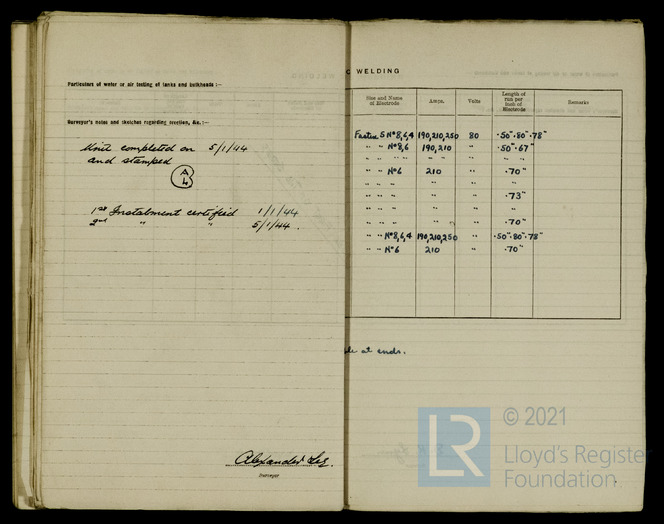 Particulars of water or air testing of tanks and bulkheads :—
Surveyor's notes and sketches regarding erection, &c. :—
Unit completed on 5/1/44
and stamped
A
4
1st Instalment certified 1/1/44
2nd " " 5/1/44.
Alexander
Surveyor
C WELDING
Size and Name of Electrode Amps. Volts Length of run per inch of Electrode Remarks
5 Nº8,6,4 190,210,250 80 .50" .80" .78"
" " Nº8,6 190,210 " .50" .67"
" " " " " " " "
" " Nº6 210 " .70"
" " " " " "
" " " " " .73"
" " " " " "
" " " " " .70"
" " Nº8,6,4 190,210,250 " .50" .80" .78"
" " Nº6 210 " .70"
at ends.
LR
© 2021
Lloyd's Register
Foundation